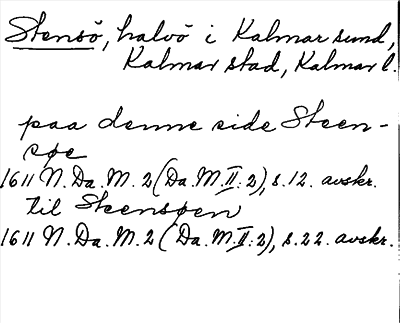 Stensö, halvö i Kalmar sund,
Kalmar stad, Kalmar l.
paa denne side Steen-
søe
1611 N. Da. M. 2 (Da. M. II: 2), s. 12. avskr.
til Steensøen
1611 N. Da. M. 2 (Da. M. II: 2), s. 22. avskr.